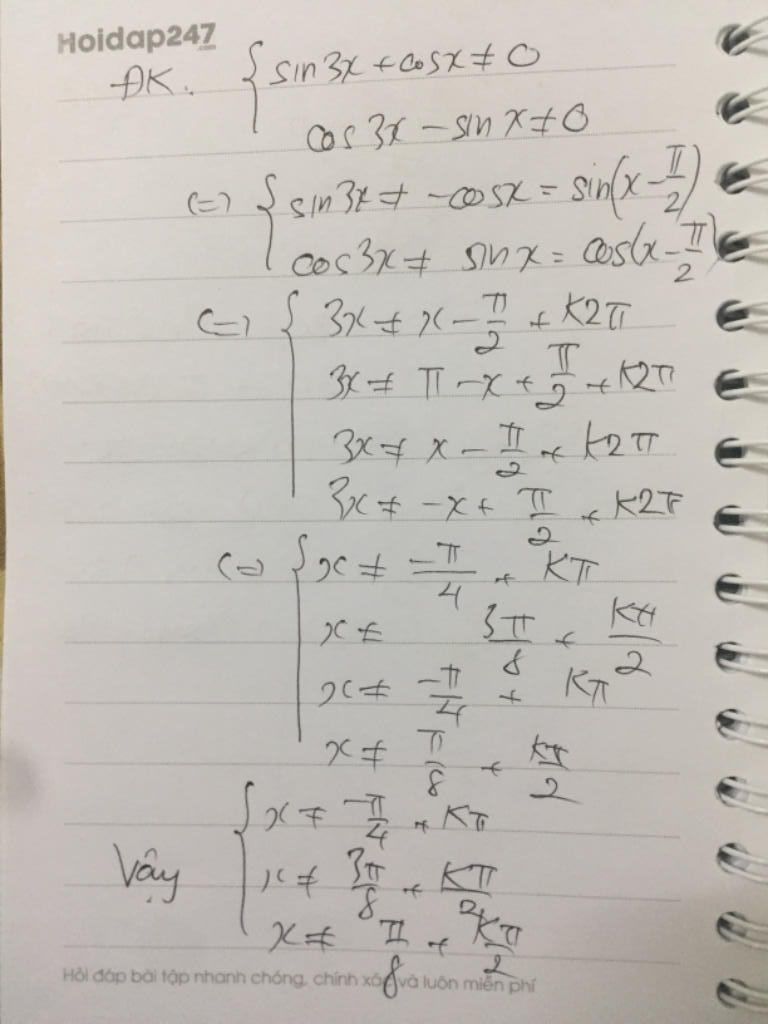 Hoidap247
.com
ĐK. { sin3x + cosx ≠ 0
cos3x - sinx ≠ 0
(=) { sin3x ≠ -cosx = sin(x - π/2)
cos3x ≠ sinx = cos(x - π/2)
(=) { 3x ≠ x - π/2 + K2π
3x ≠ π - x + π/2 + K2π
3x ≠ x - π/2 + K2π
3x ≠ -x + π/2 + K2π
(=) { x ≠ -π/4 + Kπ
x ≠ 3π/8 + Kπ/2
x ≠ -π/4 + Kπ
x ≠ π/8 + Kπ/2
Vậy { x ≠ -π/4 + Kπ
x ≠ 3π/8 + Kπ/2
x ≠ π/8 + Kπ/2
Hỏi đáp bài tập nhanh chóng, chính xác và luôn miễn phí